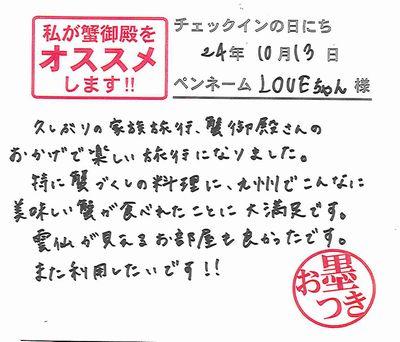 私が蟹御殿を
オススメ
します!!
チェックインの日にち
24年10月13日
ペンネーム LOVEちゃん 様
久しぶりの家族旅行、蟹御殿さんの
おかげで楽しい旅行になりました。
特に蟹づくしの料理に、九州でこんなに
美味しい蟹が食べれたことに大満足です。
雲仙が見えるお部屋も良かったです。
また利用したいです!!
お墨つき